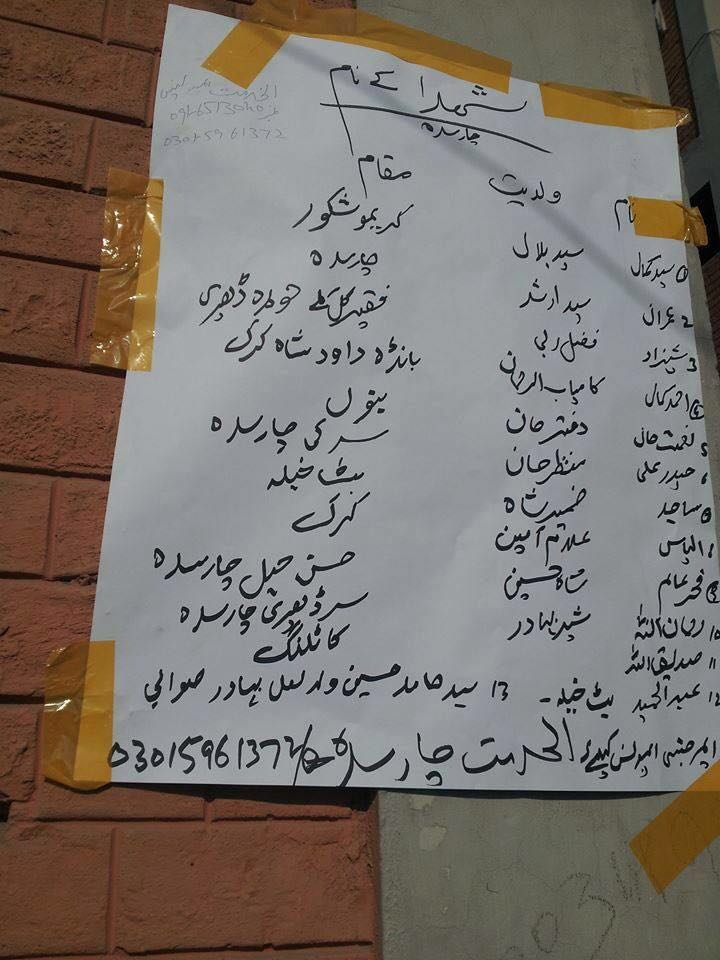 شهدا کے نام
چارسدہ
0946513040
03015961372
نام ولدیت مقام
1 سید کمال سید بلال کریمو شکور
2 عمران سید ارشد چارسدہ
3 شہزاد فضل ربی فقیر گل کلے ڈھیری
4 احمد کمال کامیاب الرحمان بانڈہ داود شاہ کرک
5 نعمت خان دفتر خان بنوں
6 حیدر علی منظر خان سرکی چارسدہ
ساجد ضمیر شاہ بٹ خیلہ
الیاس غلام امین کرک
9 فخر عالم شاہ حسین حسن خیل چارسدہ
10 رحمان اللہ شیر بہادر سرڈھیری چارسدہ
11 صدیق اللہ کاٹلنگ
12 عبدالحمید بٹ خیلہ - 13 سید حامد حسین ولد لعل بہادر صوابی
ایمرجنسی ایمبولنس کیلئے الخدمت چارسدہ 03015961372